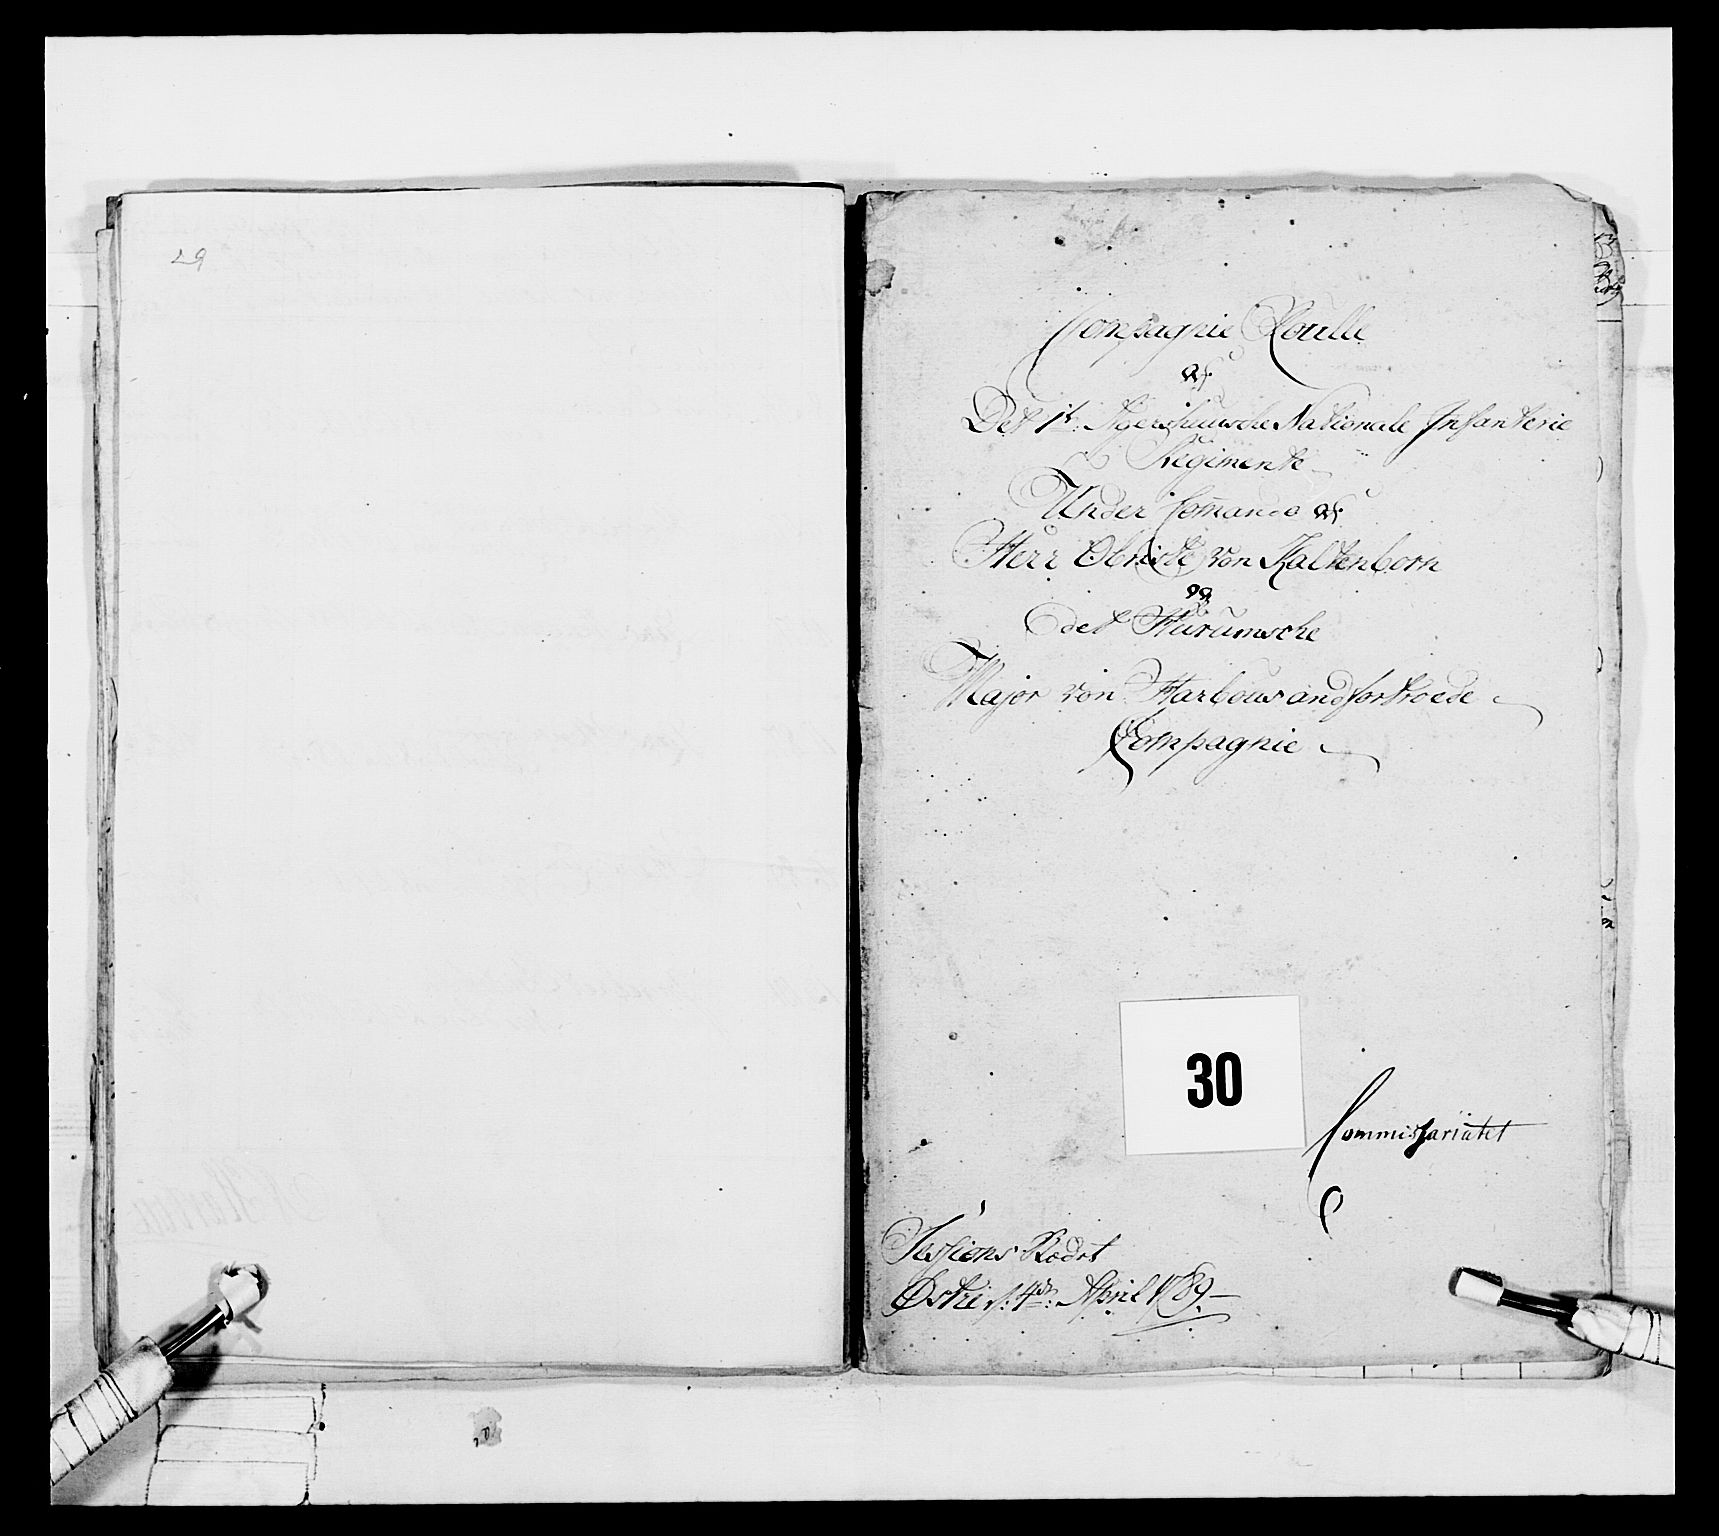 29
Compagnie Roulle
af
Det 1te Agershuusche Nationale Infanterie
Regimente
Under Comando af
Herr Obriste von Kaltenborn
og
det Hurumsche
Major von Harbou anfortroede
Compagnie
30
Commissariatet
Sessions Stædet
Østre d: 4de April 1789